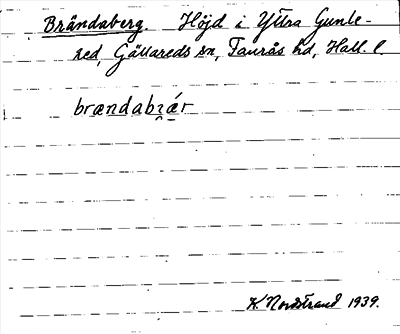 Brändaberg. Höjd i Yttra Gunle-
red, Gällareds sn, Faurås hd, Hall. l.
brændabɪ̯ǽr
K. Nordstrand 1939.